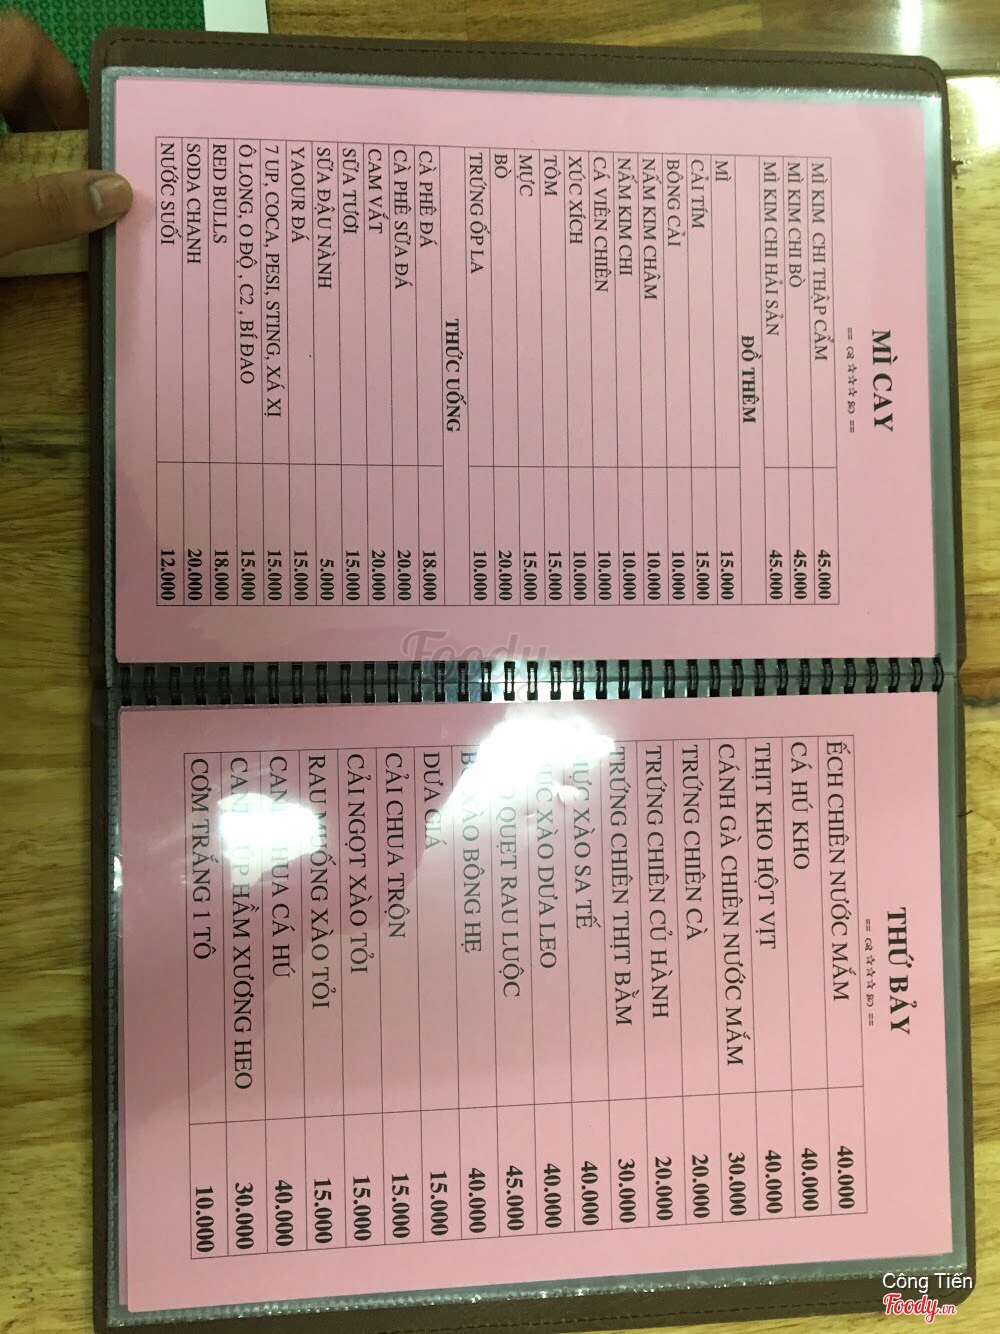 MÌ CAY
MÌ KIM CHI THẬP CẨM 45.000
MÌ KIM CHI BÒ 45.000
MÌ KIM CHI HẢI SẢN 45.000
ĐỒ THÊM
MÌ 15.000
CẢI TÍM 15.000
BÔNG CẢI 10.000
NẤM KIM CHÂM 10.000
NẤM KIM CHI 10.000
CÁ VIÊN CHIÊN 10.000
XÚC XÍCH 10.000
TÔM 15.000
MỰC 15.000
BÒ 20.000
TRỨNG ỐP LA 10.000
THỨC UỐNG
CÀ PHÊ ĐÁ 18.000
CÀ PHÊ SỮA ĐÁ 20.000
CAM VẮT 20.000
SỮA TƯƠI 15.000
SỮA ĐẬU NÀNH 5.000
YAOUR ĐÁ 15.000
7 UP, COCA, PESI, STING, XÁ XỊ 15.000
Ô LONG, O ĐỘ , C2 , BÍ ĐAO 15.000
RED BULLS 18.000
SODA CHANH 20.000
NƯỚC SUỐI 12.000
THỨ BẢY
ẾCH CHIÊN NƯỚC MẮM 40.000
CÁ HÚ KHO 40.000
THỊT KHO HỘT VỊT 40.000
CÁNH GÀ CHIÊN NƯỚC MẮM 30.000
TRỨNG CHIÊN CÀ 20.000
TRỨNG CHIÊN CỦ HÀNH 20.000
TRỨNG CHIÊN THỊT BẰM 30.000
XÀO SA TẾ 40.000
XÀO DƯA LEO 40.000
QUẸT RAU LUỘC 45.000
XÀO BÔNG HẸ 40.000
DƯA GIÁ 15.000
CẢI CHUA TRỘN 15.000
CẢI NGỌT XÀO TỎI 15.000
RAU MUỐNG XÀO TỎI 15.000
CANH CHUA CÁ HÚ 40.000
CANH HẦM XƯƠNG HEO 30.000
CƠM TRẮNG 1 TÔ 10.000
Foody
Công Tiến
Foody.vn